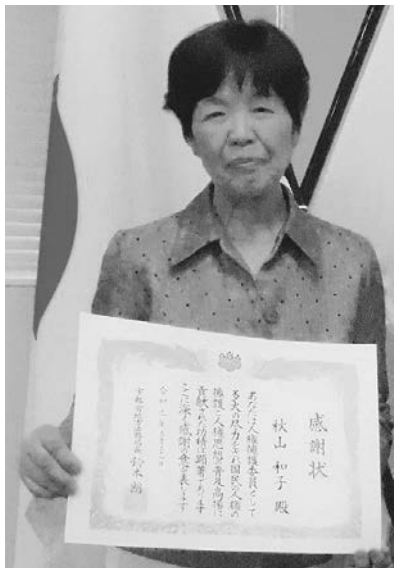 感謝状
秋山和子殿
あなたは人権擁護委員として
多大の尽力をされ国民の人権の
擁護と人権思想の普及高揚に
貢献された功績は顕著であります
ここに深く感謝の意を表します
令和元年
宇都宮地方法務局長 鈴木